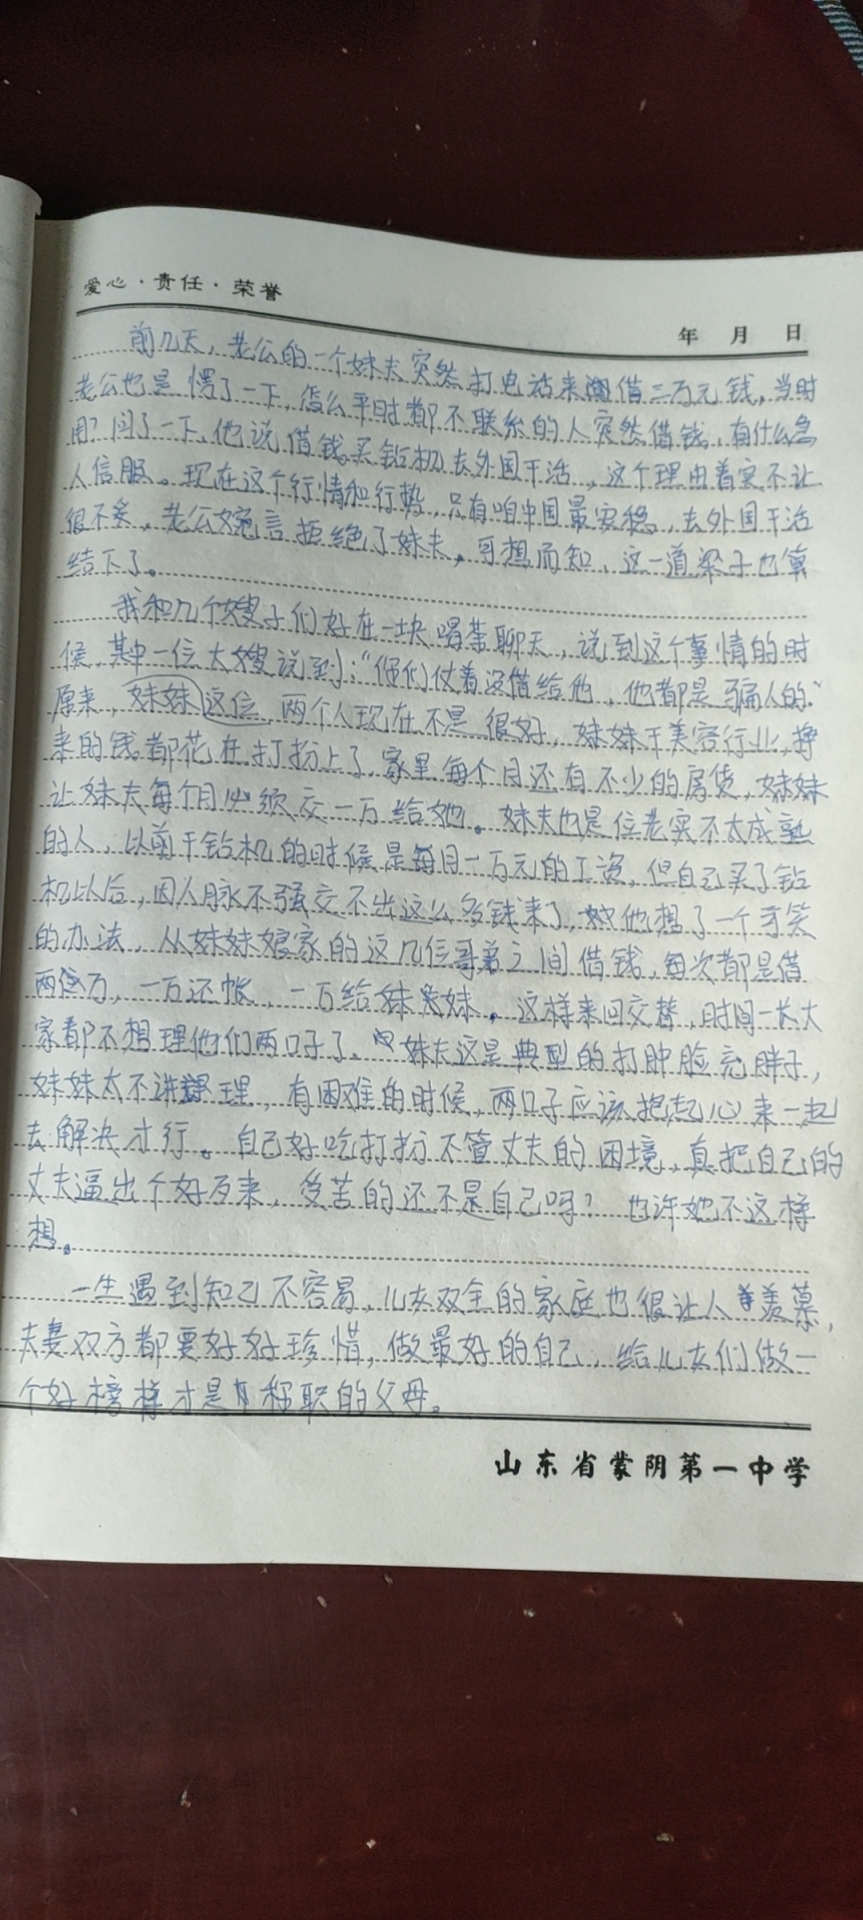 爱心·责任·荣誉
年 月 日
前几天，老公的一个妹夫突然打电话来借二万元钱，当时
老公也是愣了一下，怎么平时都不联系的人突然借钱，有什么急
用？问了一下，他说借钱买钻机去外国干活，这个理由着实不让
人信服。现在这个行情和行势，只有咱中国最安稳，去外国干活
很不妥，老公婉言拒绝了妹夫，可想而知，这一道梁子也算
结下了。
我和几个嫂子们好在一块喝茶聊天，说到这个事情的时
候，其中一位大嫂说到：“你们仗着没借给他，他都是骗人的”
原来，妹妹这位，两个人现在不是很好，妹妹干美容行业，挣
来的钱都花在打扮上了，家里每个月还有不少的房贷，妹妹
让妹夫每个月必须交一万给她。妹夫也是位老实不太成熟
的人，以前干钻机的时候是每月一万元的工资，但自己买了钻
机以后，因人脉不强交不出这么多钱来了，他想了一个可笑
的办法，从妹妹娘家的这几位哥弟之间借钱，每次都是借
两万，一万还帐，一万给妹妹，这样来回交替，时间一长大
家都不想理他们两口子了，妹夫这是典型的打肿脸充胖子，
妹妹太不讲理，有困难的时候，两口子应该抱起心来一起
去解决才行。自己好吃打扮不管丈夫的困境，真把自己的
丈夫逼出个好歹来，受苦的还不是自己吗？也许她不这样
想。
一生遇到知己不容易，儿女双全的家庭也很让人羡慕，
夫妻双方都要好好珍惜，做最好的自己，给儿女们做一
个好榜样才是称职的父母。
山东省蒙阴第一中学